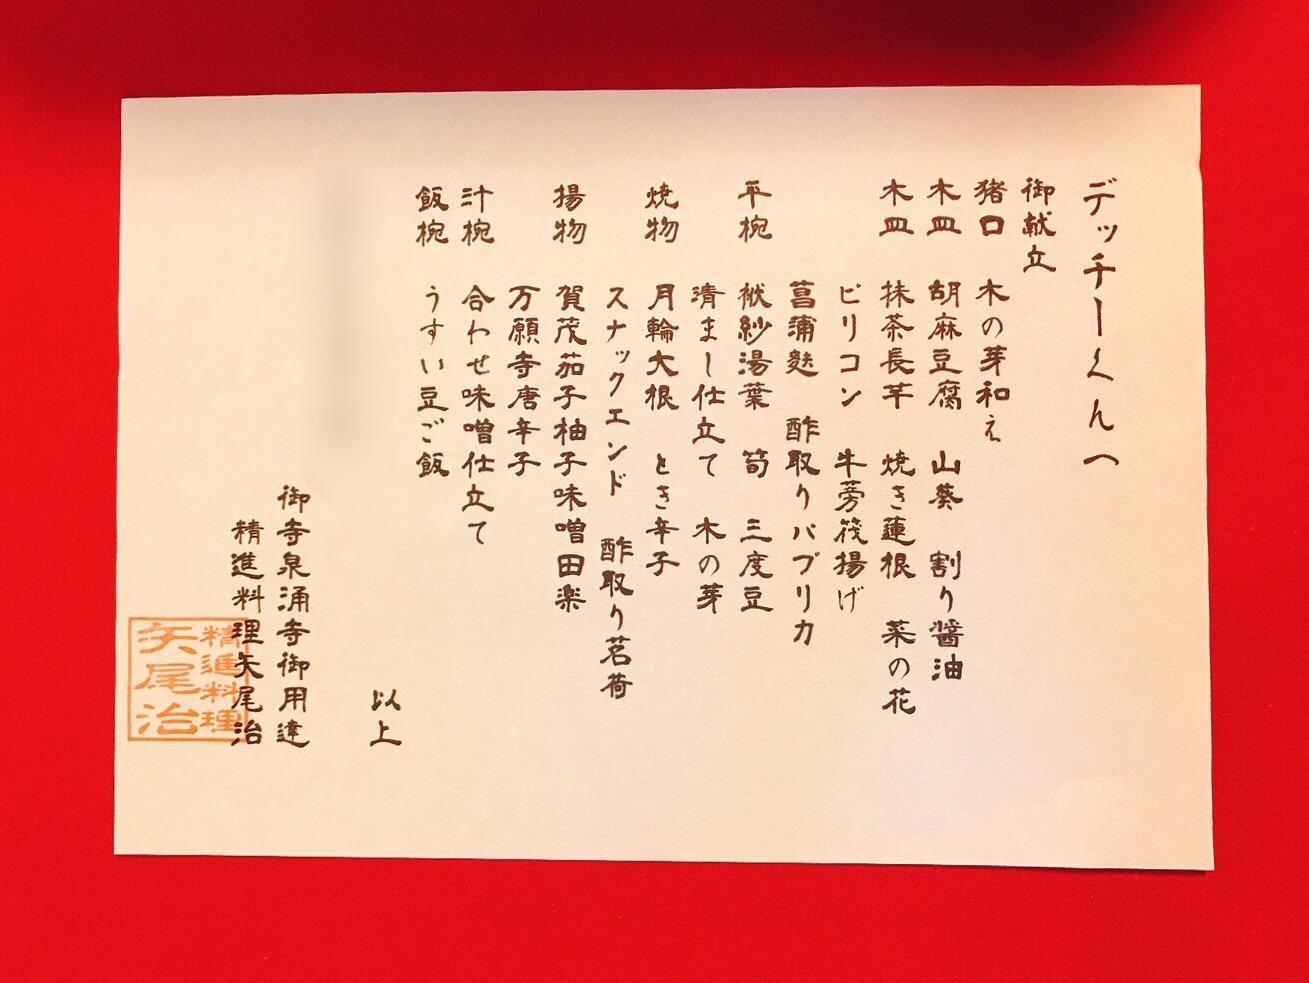 デッチーくんへ
御献立
猪口　木の芽和え
木皿　胡麻豆腐　山葵　割り醤油
木皿　抹茶長芋　焼き蓮根　菜の花
ピリコン　牛蒡筏揚げ
菖蒲麩　酢取りパプリカ
平椀　袱紗湯葉　筍　三度豆
清まし仕立て　木の芽
焼物　月輪大根　とき辛子
スナックエンド　酢取り茗荷
揚物　賀茂茄子柚子味噌田楽
万願寺唐辛子
汁椀　合わせ味噌仕立て
飯椀　うすい豆ご飯
以上
御寺泉涌寺御用達
精進料理矢尾治
精進料理
矢尾治